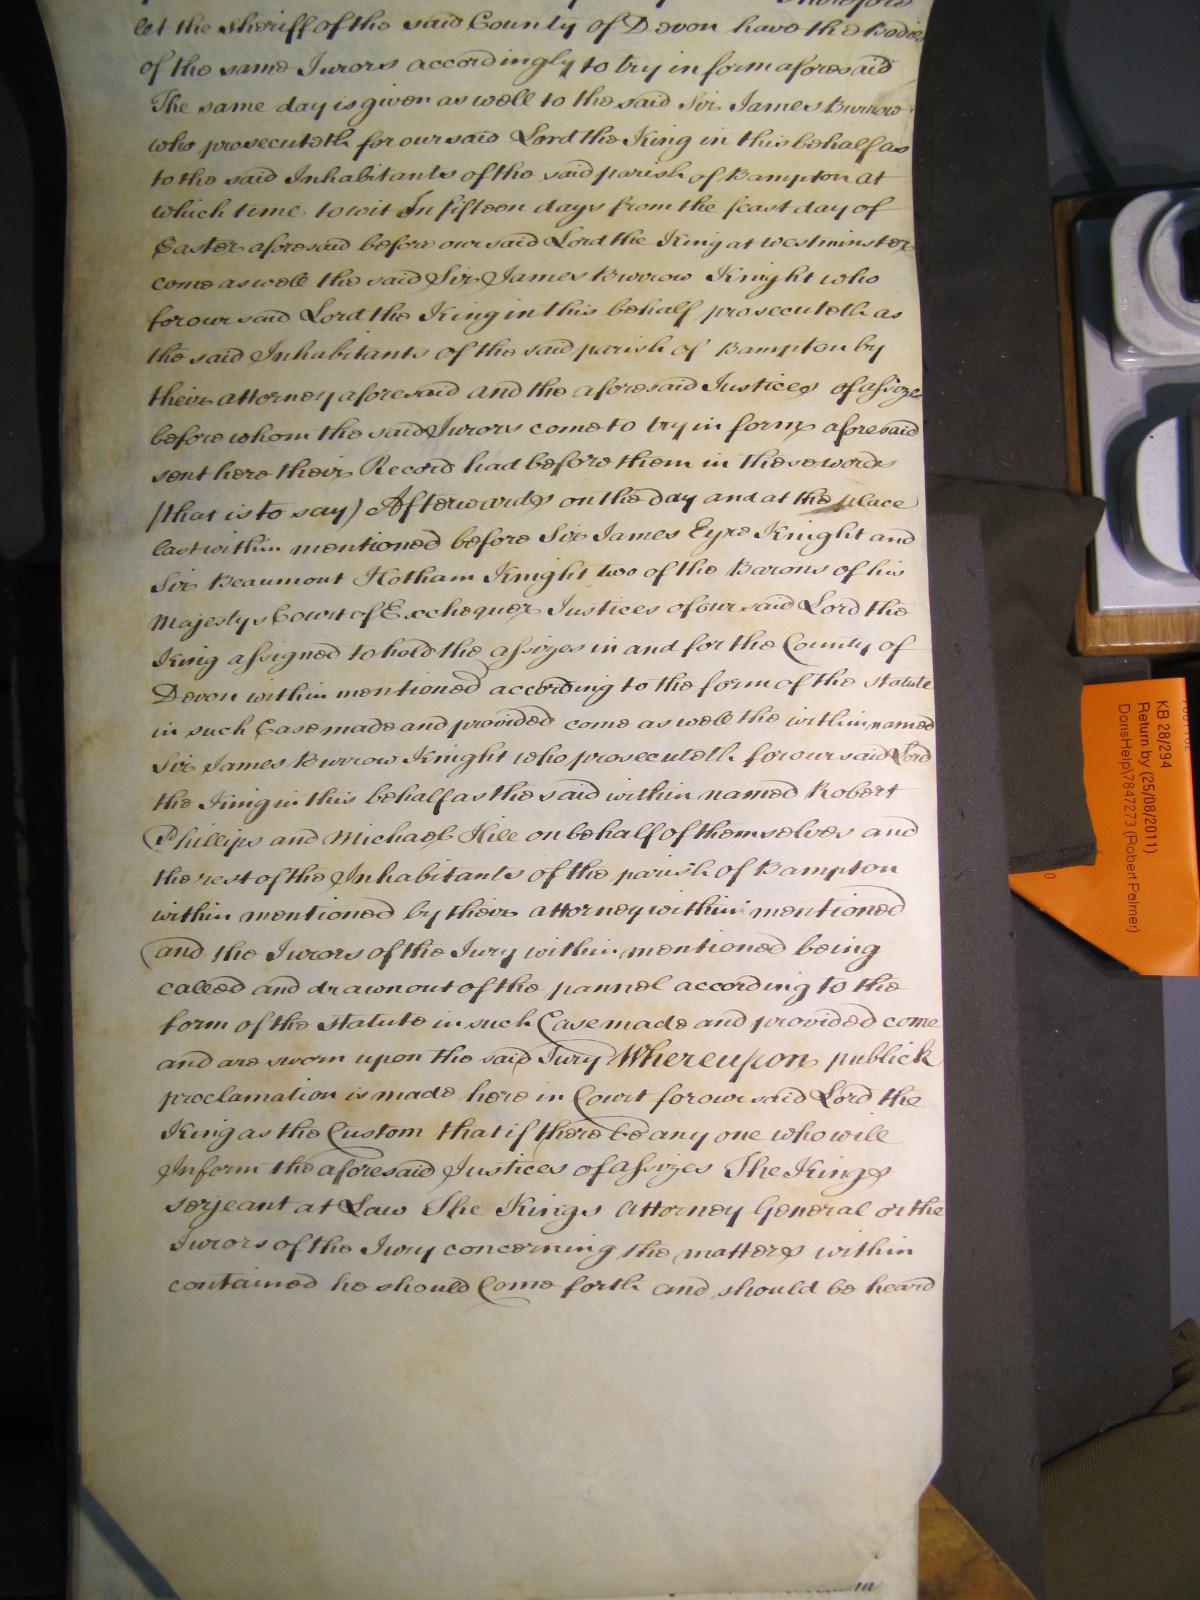 Therefore
let the Sheriff of the said County of Devon have the Bodies
of the same Jurors accordingly to try in form aforesaid
The same day is given as well to the said Sir James Burrow
who prosecuteth for our said Lord the King in this behalf as
to the said Inhabitants of the said parish of Bampton at
which time to wit In fifteen days from the feast day of
Easter aforesaid before our said Lord the King at Westminster
come as well the said Sir James Burrow Knight who
for our said Lord the King in this behalf prosecuteth as
the said Inhabitants of the said parish of Bampton by
their attorney aforesaid and the aforesaid Justices of assize
before whom the said Jurors come to try in form aforesaid
sent here their Record had before them in these words
(that is to say) Afterwards on the day and at the place
last within mentioned before Sir James Eyre Knight and
Sir Beaumont Hotham Knight two of the Barons of his
Majestys Court of Exchequer Justices of our said Lord the
King assigned to hold the assizes in and for the County of
Devon within mentioned according to the form of the statute
in such Case made and provided come as well the within named
Sir James Burrow Knight who prosecuteth for our said Lord
the King in this behalf as the said within named Robert
Phillips and Michael Hill on behalf of themselves and
the rest of the Inhabitants of the parish of Bampton
within mentioned by their attorney within mentioned
and the Jurors of the Jury within mentioned being
called and drawn out of the pannel according to the
form of the statute in such Case made and provided come
and are sworn upon the said Jury Whereupon publick
proclamation is made here in Court for our said Lord the
King as the Custom that if there be any one who will
Inform the aforesaid Justices of Assizes The Kings
serjeant at Law The Kings Attorney General or the
Jurors of the Jury concerning the matters within
contained he should Come forth and should be heard
KB 28/294
Return by (25/08/2011)
DorisHelp\7847273 (Robert Palmer)